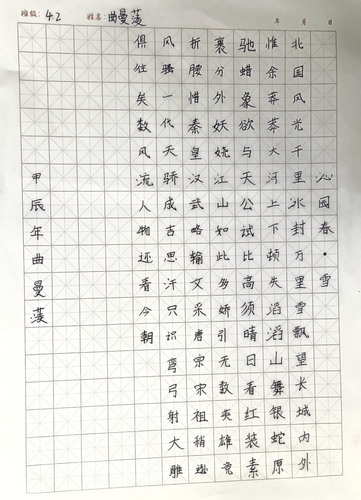 班级：4.2 姓名：曲曼 年 月 日
沁园春·雪
北国风光千里冰封万里雪飘望长城内外
惟余莽莽大河上下顿失滔滔山舞银蛇原
驰蜡象欲与天公试比高须晴日看红装素
裹分外妖娆江山如此多娇引无数英雄竞
折腰惜秦皇汉武略输文采唐宗宋祖稍逊
风骚一代天骄成吉思汗只识弯弓射大雕
俱往矣数风流人物还看今朝
甲辰年曲曼